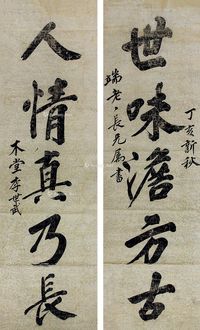 世味澹方古
丁亥新秋
端老〻長兄属書
人情真乃長
木堂李世武